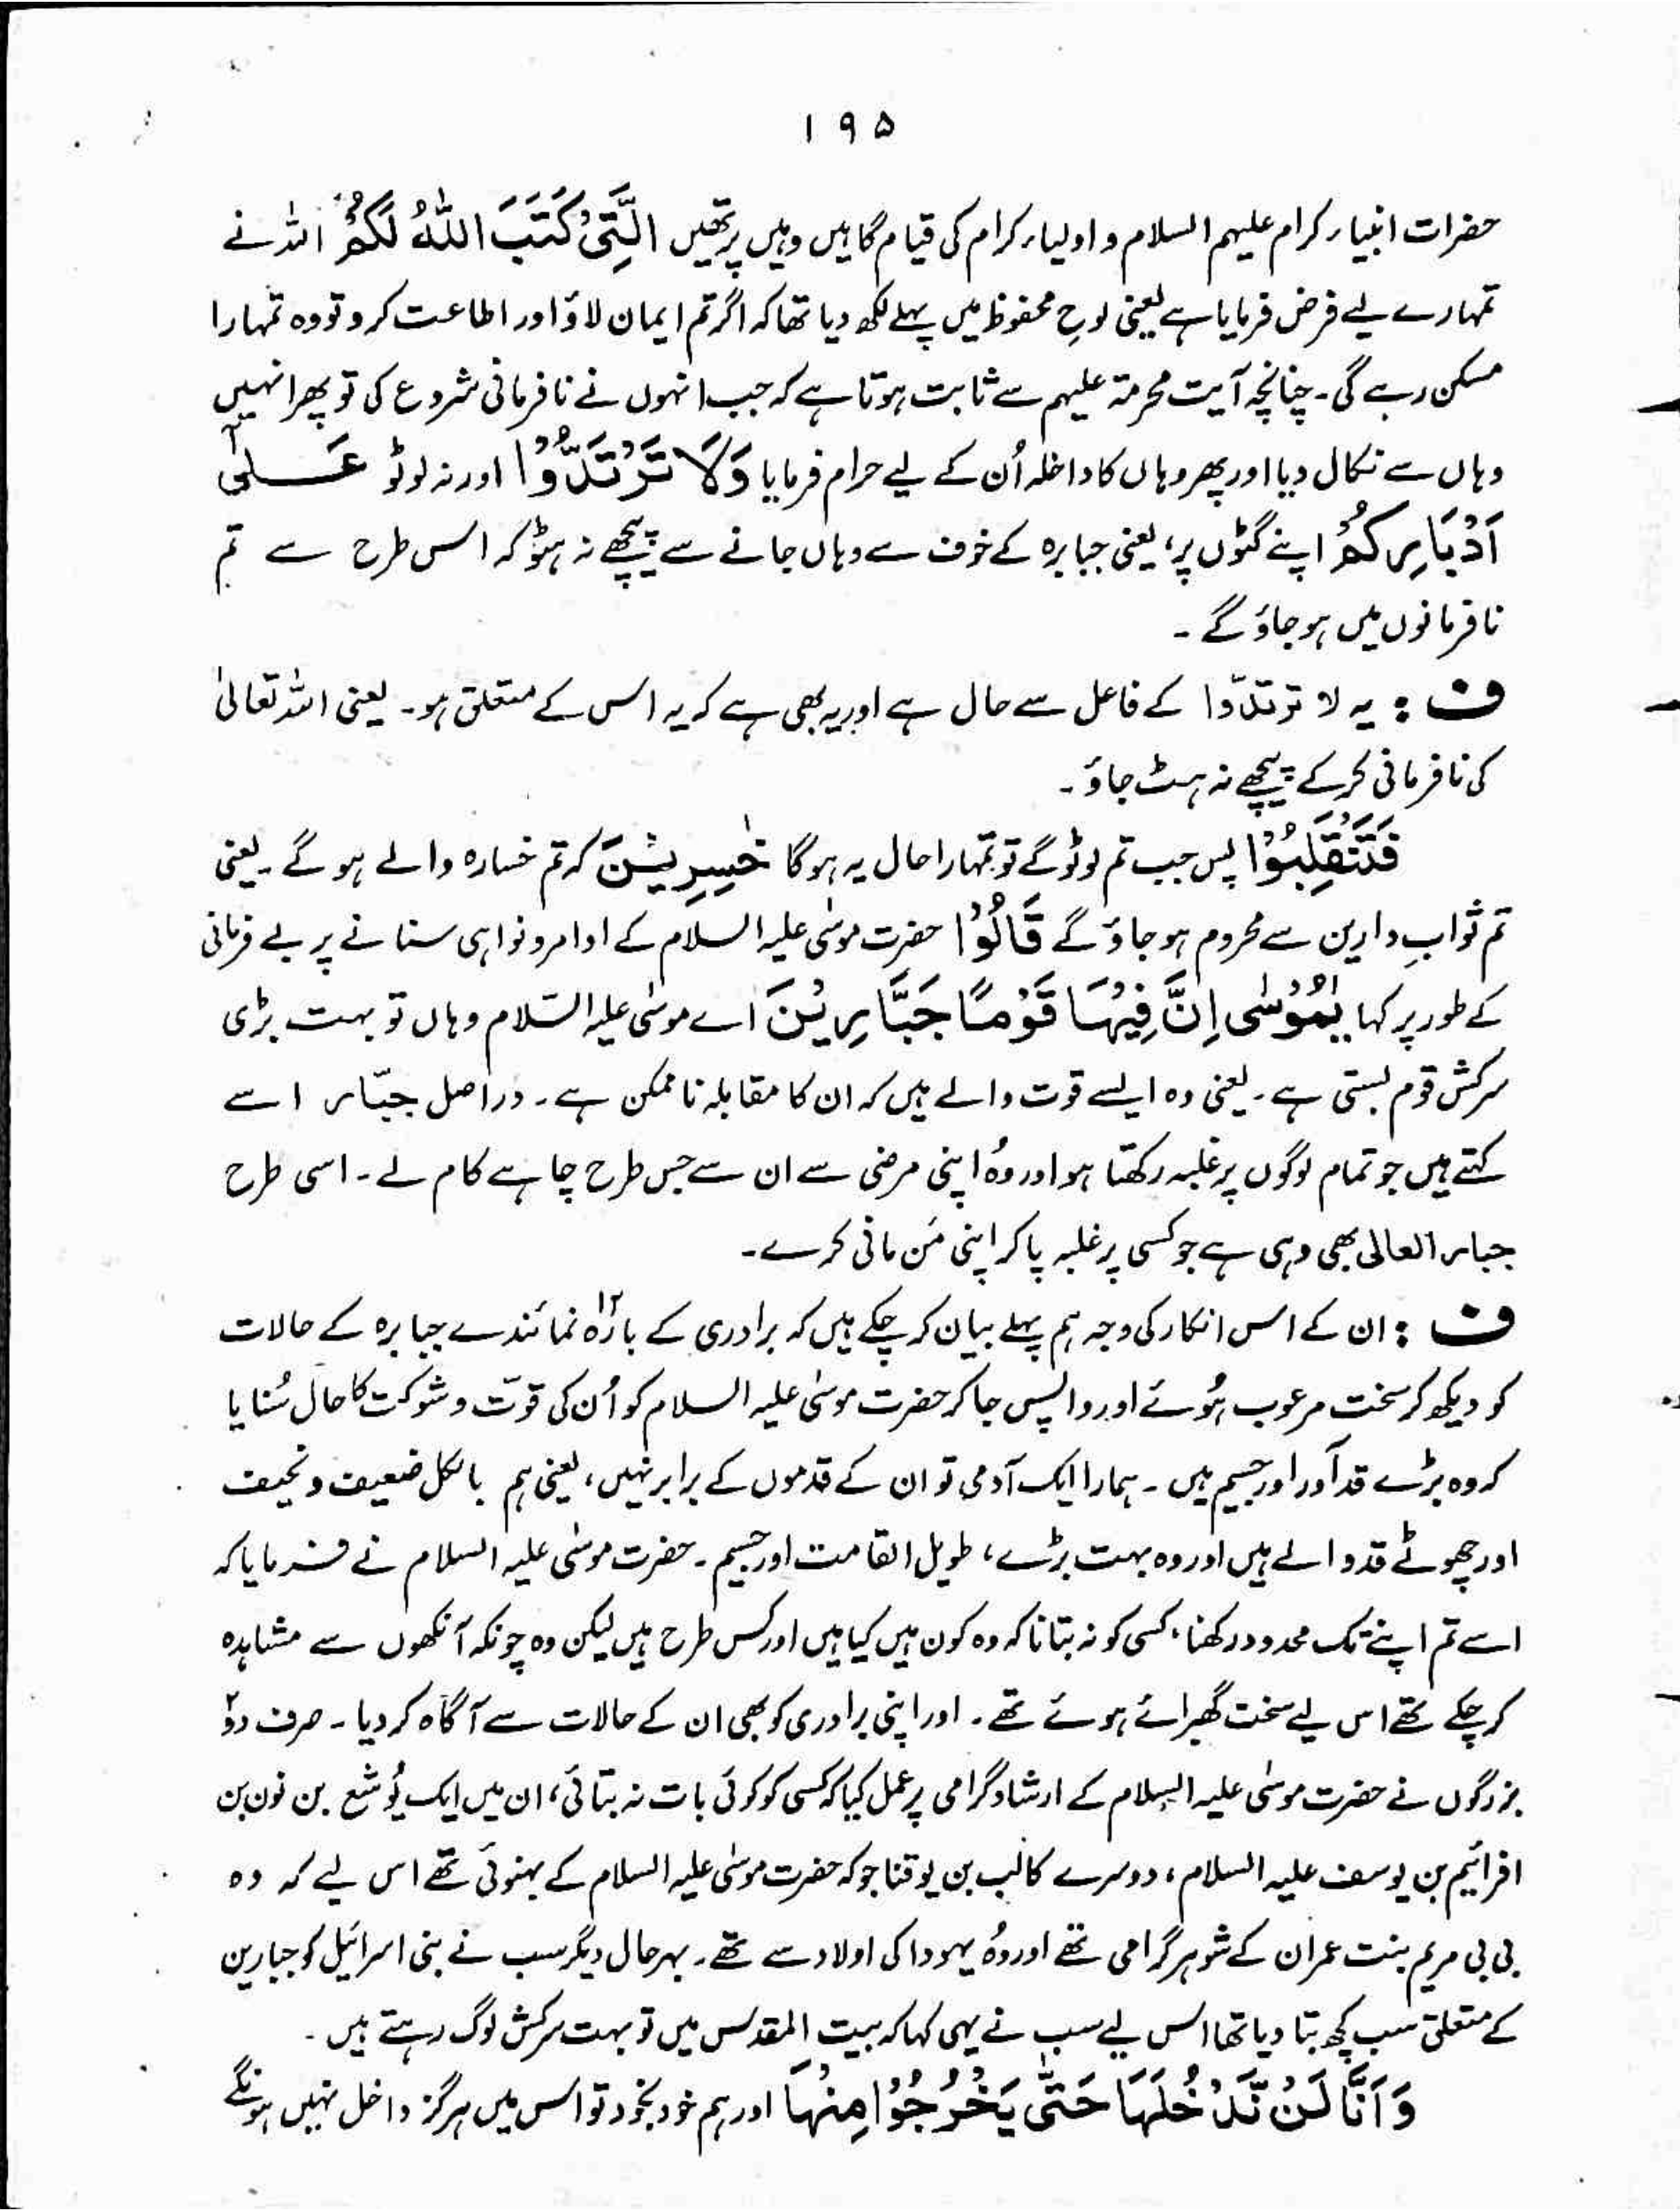 ۱۹۵
حضرات انبیاء کرام علیہم السلام و اولیاء کرام کی قیام گاہیں وہیں پر تھیں الَّتِیْ كَتَبَ اللّٰهُ لَكُمْ اللہ نے
تمہارے لیے فرض فرمایا ہے یعنی لوحِ محفوظ میں پہلے لکھ دیا تھا کہ اگر تم ایمان لاؤ اور اطاعت کرو تو وہ تمہارا
مسکن رہے گی۔ چنانچہ آیت محرمۃ علیہم سے ثابت ہوتا ہے کہ جب انہوں نے نافرمانی شروع کی تو پھر انہیں
وہاں سے نکال دیا اور پھر وہاں کا داخلہ اُن کے لیے حرام فرمایا وَلَا تَرْتَدُّوْا اور نہ لوٹو عَلٰۤی
اَدْبَارِكُمْ اپنے گٹوں پر، یعنی جبابرہ کے خوف سے وہاں جانے سے پیچھے نہ ہٹو کہ اس طرح سے تم
نافرمانوں میں ہو جاؤ گے۔
ف : یہ لا ترتدّوا کے فاعل سے حال ہے اور یہ بھی ہے کہ یہ اس کے متعلق ہو۔ یعنی اللہ تعالیٰ
کی نافرمانی کرکے پیچھے نہ ہٹ جاؤ۔
فَتَنْقَلِبُوْا پس جب تم لوٹو گے تو تمہارا حال یہ ہوگا خٰسِرِیْنَ کہ تم خسارہ والے ہو گے۔ یعنی
تم ثوابِ دارین سے محروم ہو جاؤ گے قَالُوْا حضرت موسٰی علیہ السلام کے اوامر و نواہی سنانے پر بے فرمانی
کے طور پر کہا یٰمُوْسٰی اِنَّ فِیْهَا قَوْمًا جَبَّارِیْنَ اے موسٰی علیہ السّلام وہاں تو بہت بڑی
سرکش قوم بستی ہے۔ یعنی وہ ایسے قوت والے ہیں کہ ان کا مقابلہ ناممکن ہے۔ دراصل جبّار اسے
کہتے ہیں جو تمام لوگوں پر غلبہ رکھتا ہو اور وُہ اپنی مرضی سے ان سے جس طرح چاہے کام لے۔ اسی طرح
جبار العالی بھی وہی ہے جو کسی پر غلبہ پا کر اپنی مَن مانی کرے۔
ف : ان کے اس انکار کی وجہ ہم پہلے بیان کر چکے ہیں کہ برادری کے بارہ۱۲ نمائندے جبابرہ کے حالات
کو دیکھ کر سخت مرعوب ہُوئے اور واپس جا کر حضرت موسٰی علیہ السلام کو اُن کی قوّت و شوکت کا حال سُنایا
کہ وہ بڑے قدآور اور جسیم ہیں۔ ہمارا ایک آدمی تو ان کے قدموں کے برابر نہیں، یعنی ہم بالکل ضعیف و نحیف
اور چھوٹے قد والے ہیں اور وہ بہت بڑے، طویل القامت اور جسیم۔ حضرت موسٰی علیہ السلام نے فرمایا کہ
اسے تم اپنے تک محدود رکھنا، کسی کو نہ بتانا کہ وہ کون ہیں کیا ہیں اور کس طرح ہیں لیکن وہ چونکہ آنکھوں سے مشاہدہ
کر چکے تھے اس لیے سخت گھبرائے ہوئے تھے۔ اور اپنی برادری کو بھی ان کے حالات سے آگاہ کر دیا۔ صرف دو۲
بزرگوں نے حضرت موسٰی علیہ السلام کے ارشاد گرامی پر عمل کیا کہ کسی کو کوئی بات نہ بتائی، ان میں ایک یُوشع بن نون بن
افرائیم بن یوسف علیہ السلام، دوسرے کالب بن یوقنا جو کہ حضرت موسٰی علیہ السلام کے بہنوئی تھے اس لیے کہ وہ
بی بی مریم بنت عمران کے شوہر گرامی تھے اور وُہ یہودا کی اولاد سے تھے۔ بہرحال دیگر سب نے بنی اسرائیل کو جبارین
کے متعلق سب کچھ بتا دیا تھا اس لیے سب نے یہی کہا کہ بیت المقدس میں تو بہت سرکش لوگ رہتے ہیں۔
وَاَنَّا لَنْ نَّدْخُلَهَا حَتّٰی یَخْرُجُوْا مِنْهَا اور ہم خود بخود تو اس میں ہرگز داخل نہیں ہونگے